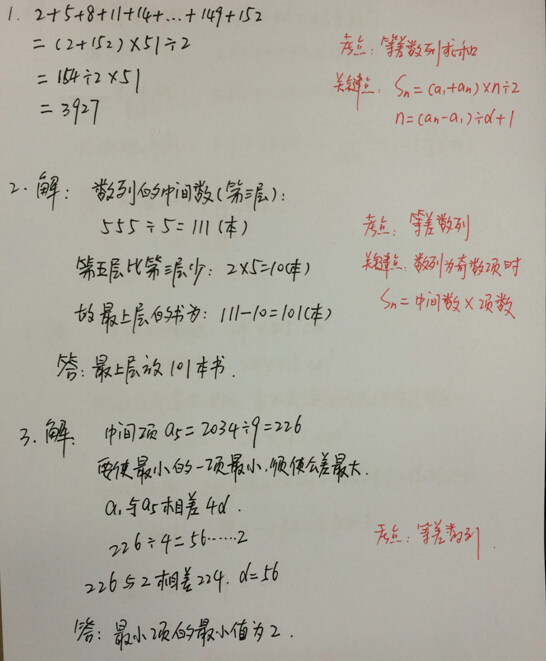 1. 2+5+8+11+14+...+149+152
= (2+152)×51÷2
= 154÷2×51
= 3927
考点: 等差数列求和
关键点: Sn=(a₁+an)×n÷2
n=(an-a₁)÷d+1
2. 解: 数列的中间数(第三层):
555÷5=111(本)
第五层比第三层少: 2×5=10(本)
故最上层的书为: 111-10=101(本)
答: 最上层放101本书.
考点: 等差数列
关键点: 数列为奇数项时
Sn=中间数×项数
3. 解: 中间项a₅=2034÷9=226
要使最小的一项最小,须使公差最大.
a₁与a₅相差4d.
226÷4=56……2
226与2相差224. d=56
答: 最小项的最小值为2.
考点: 等差数列.